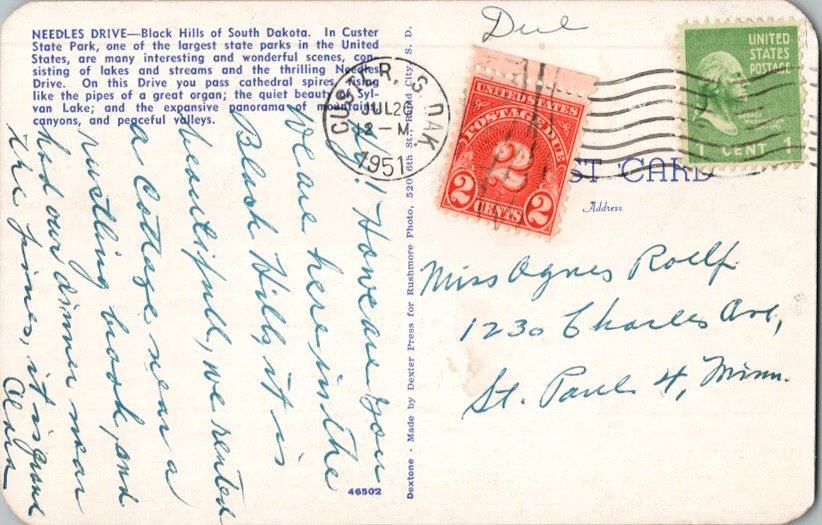 NEEDLES DRIVE—Black Hills of South Dakota. In Custer
State Park, one of the largest state parks in the United
States, are many interesting and wonderful scenes, con-
sisting of lakes and streams and the thrilling Needles
Drive. On this Drive you pass cathedral spires, rising
like the pipes of a great organ; the quiet beauty of Syl-
van Lake; and the expansive panorama of mountains,
canyons, and peaceful valleys.
How are you
we are here in the
Black Hills, it is
beautifull, we rented
a Cottage near a
rustling brook, and
had our dinner near
the pines, it is grand
46502
Dextone - Made by Dexter Press for Rushmore Photo, 520 6th St., Rapid City, S. D.
CUSTER, S. DAK.
JUL 26
12 - M
1951
Due
UNITED STATES
POSTAGE DUE
2
2 CENTS 2
UNITED
STATES
POSTAGE
GEORGE
WASHINGTON
1 CENT 1
ST CARD
Address
Miss Agnes Roelf
1230 Charles Ave,
St. Paul 4, Minn.